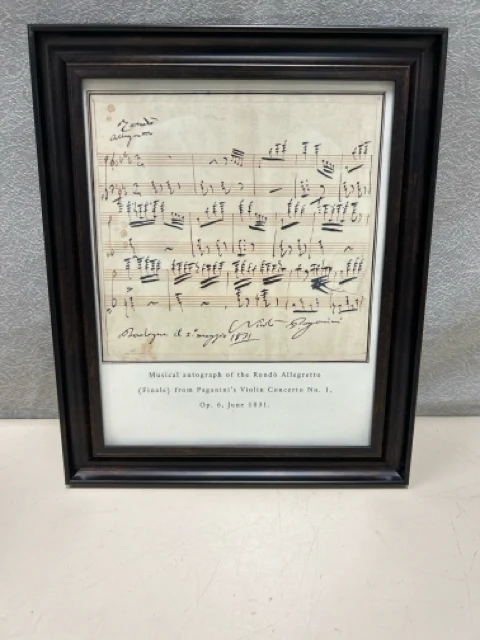 Rondò
Allegretto
1831 Nicolò Paganini
Musical autograph of the Rondò Allegretto
(Finale) from Paganini's Violin Concerto No. 1,
Op. 6, June 1831.